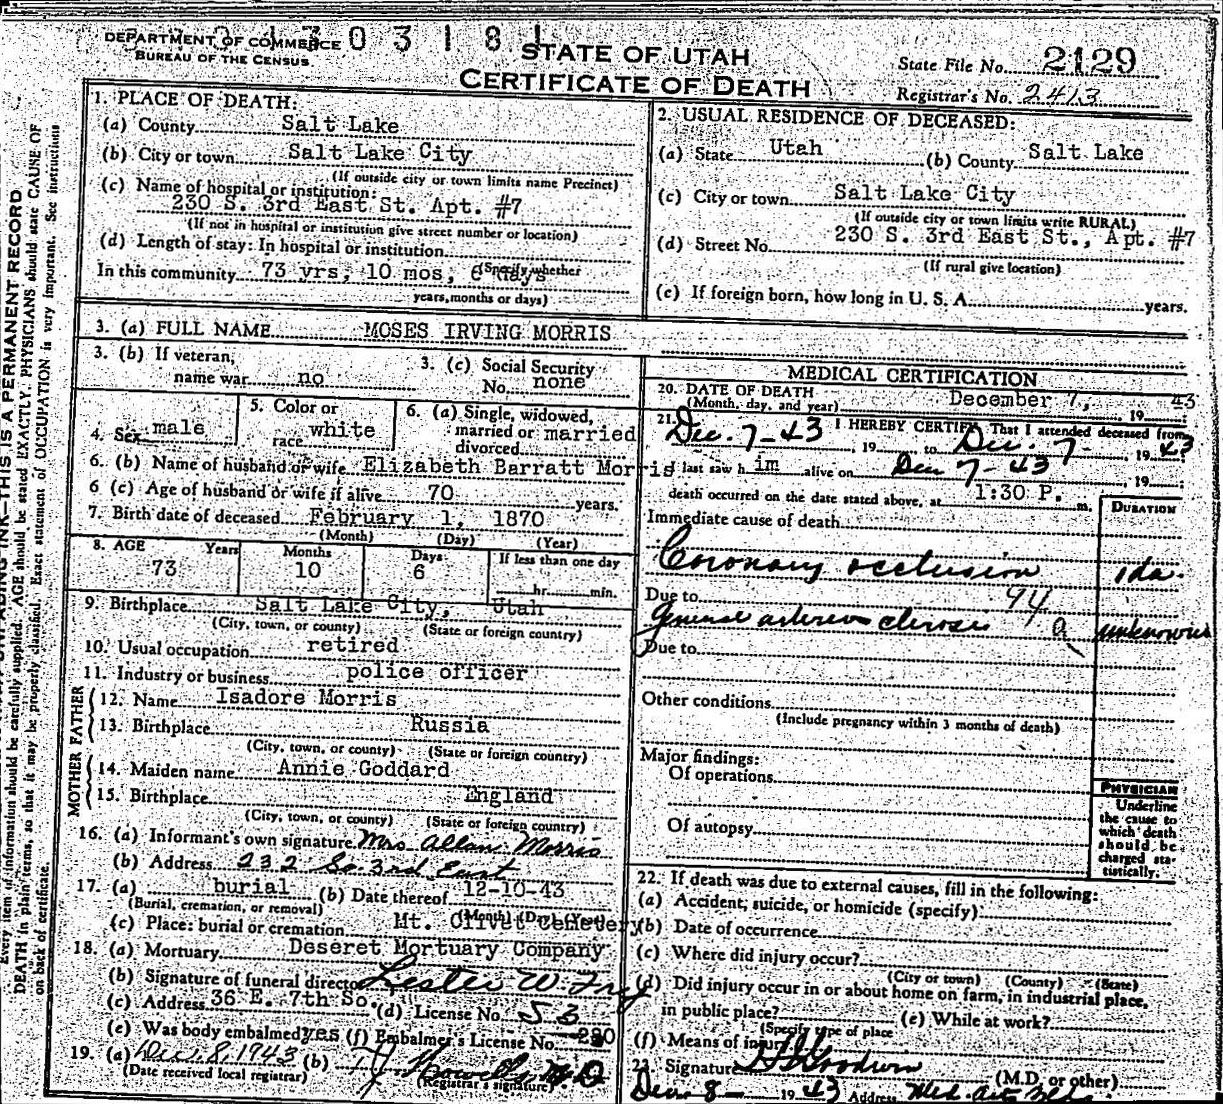 DEPARTMENT OF COMMERCE
BUREAU OF THE CENSUS
0 3 1 8 1
STATE OF UTAH
CERTIFICATE OF DEATH
State File No. 2129
Registrar's No. 2413
1. PLACE OF DEATH:
(a) County Salt Lake
(b) City or town Salt Lake City
(If outside city or town limits name Precinct)
(c) Name of hospital or institution:
230 S. 3rd East St. Apt. #7
(If not in hospital or institution give street number or location)
(d) Length of stay: In hospital or institution
(Specify whether
In this community 73 yrs, 10 mos, 6 days
years, months or days)
2. USUAL RESIDENCE OF DECEASED:
(a) State Utah (b) County Salt Lake
(c) City or town Salt Lake City
(If outside city or town limits write RURAL)
(d) Street No. 230 S. 3rd East St., Apt. #7
(If rural give location)
(e) If foreign born, how long in U. S. A. years.
3. (a) FULL NAME MOSES IRVING MORRIS
3. (b) If veteran, name war no
3. (c) Social Security No. none
4. Sex male
5. Color or race white
6. (a) Single, widowed, married or divorced married
6. (b) Name of husband or wife Elizabeth Barratt Morris
6 (c) Age of husband or wife if alive 70 years.
7. Birth date of deceased February 1, 1870
(Month) (Day) (Year)
8. AGE Years 73 Months 10 Days 6 If less than one day hr. min.
9. Birthplace Salt Lake City, Utah
(City, town, or county) (State or foreign country)
10. Usual occupation retired
11. Industry or business police officer
FATHER
12. Name Isadore Morris
13. Birthplace Russia
(City, town, or county) (State or foreign country)
MOTHER
14. Maiden name Annie Goddard
15. Birthplace England
(City, town, or county) (State or foreign country)
16. (a) Informant's own signature Mrs. Allan Morris
(b) Address 232 So. 3rd East
17. (a) burial (b) Date thereof 12-10-43
(Burial, cremation, or removal) (Month) (Day) (Year)
(c) Place: burial or cremation Mt. Olivet Cemetery
18. (a) Mortuary Deseret Mortuary Company
(b) Signature of funeral director Lester W
(c) Address 36 E. 7th So. (d) License No. 53
(e) Was body embalmed yes (f) Embalmer's License No. 280
19. (a) Dec. 8, 1943 (b) Howells M. D
(Date received local registrar) (Registrar's signature)
MEDICAL CERTIFICATION
20. DATE OF DEATH
(Month, day, and year) December 7, 19 43
21. I HEREBY CERTIFY That I attended deceased from
Dec. 7-43, 19 to Dec. 7-, 19 43
I last saw him alive on Dec 7-43, 19
death occurred on the date stated above, at 1:30 P. m.
DURATION
Immediate cause of death
Coronary occlusion 1 da.
Due to 94
General arteriosclerosis a unknown
Due to
Other conditions
(Include pregnancy within 3 months of death)
Major findings:
Of operations
Of autopsy
PHYSICIAN
Underline
the cause to
which death
should be
charged sta-
tistically.
22. If death was due to external causes, fill in the following:
(a) Accident, suicide, or homicide (specify)
(b) Date of occurrence
(c) Where did injury occur?
(City or town) (County) (State)
(d) Did injury occur in or about home on farm, in industrial place,
in public place? (e) While at work?
(Specify type of place
(f) Means of injury
23. Signature Goodwin (M.D. or other)
Dec 8- 19 43 Address Med. Arts Bldg.
THIS IS A PERMANENT RECORD
Every item of information should be carefully supplied. AGE should be stated EXACTLY. PHYSICIANS should state CAUSE OF
DEATH in plain terms, so that it may be properly classified. Exact statement of OCCUPATION is very important. See instruction
on back of certificate.